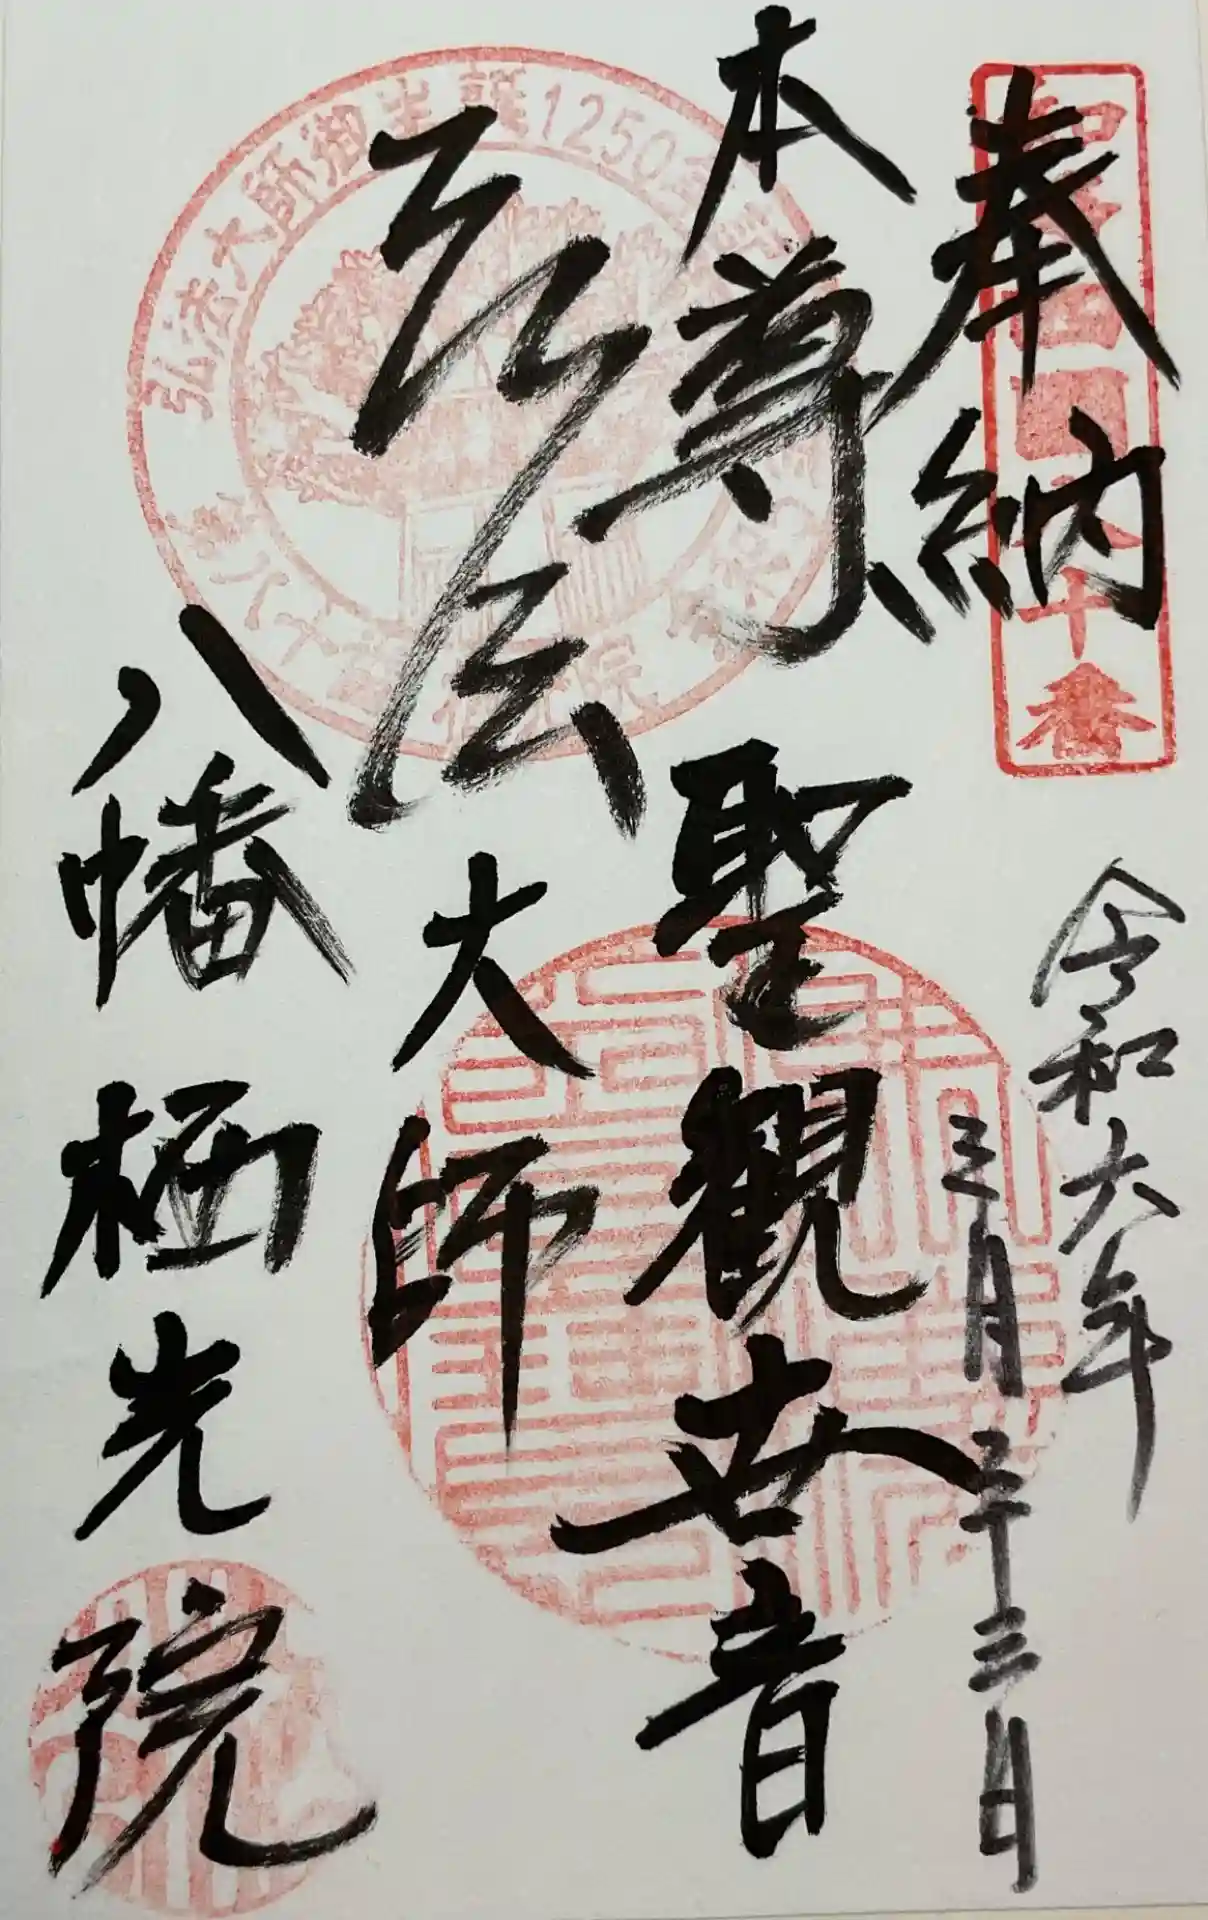 奉納
令和六年
三月二十三日
本尊 聖観世音
弘法大師
八幡 栖光院
弘法大師御生誕1250年
十番